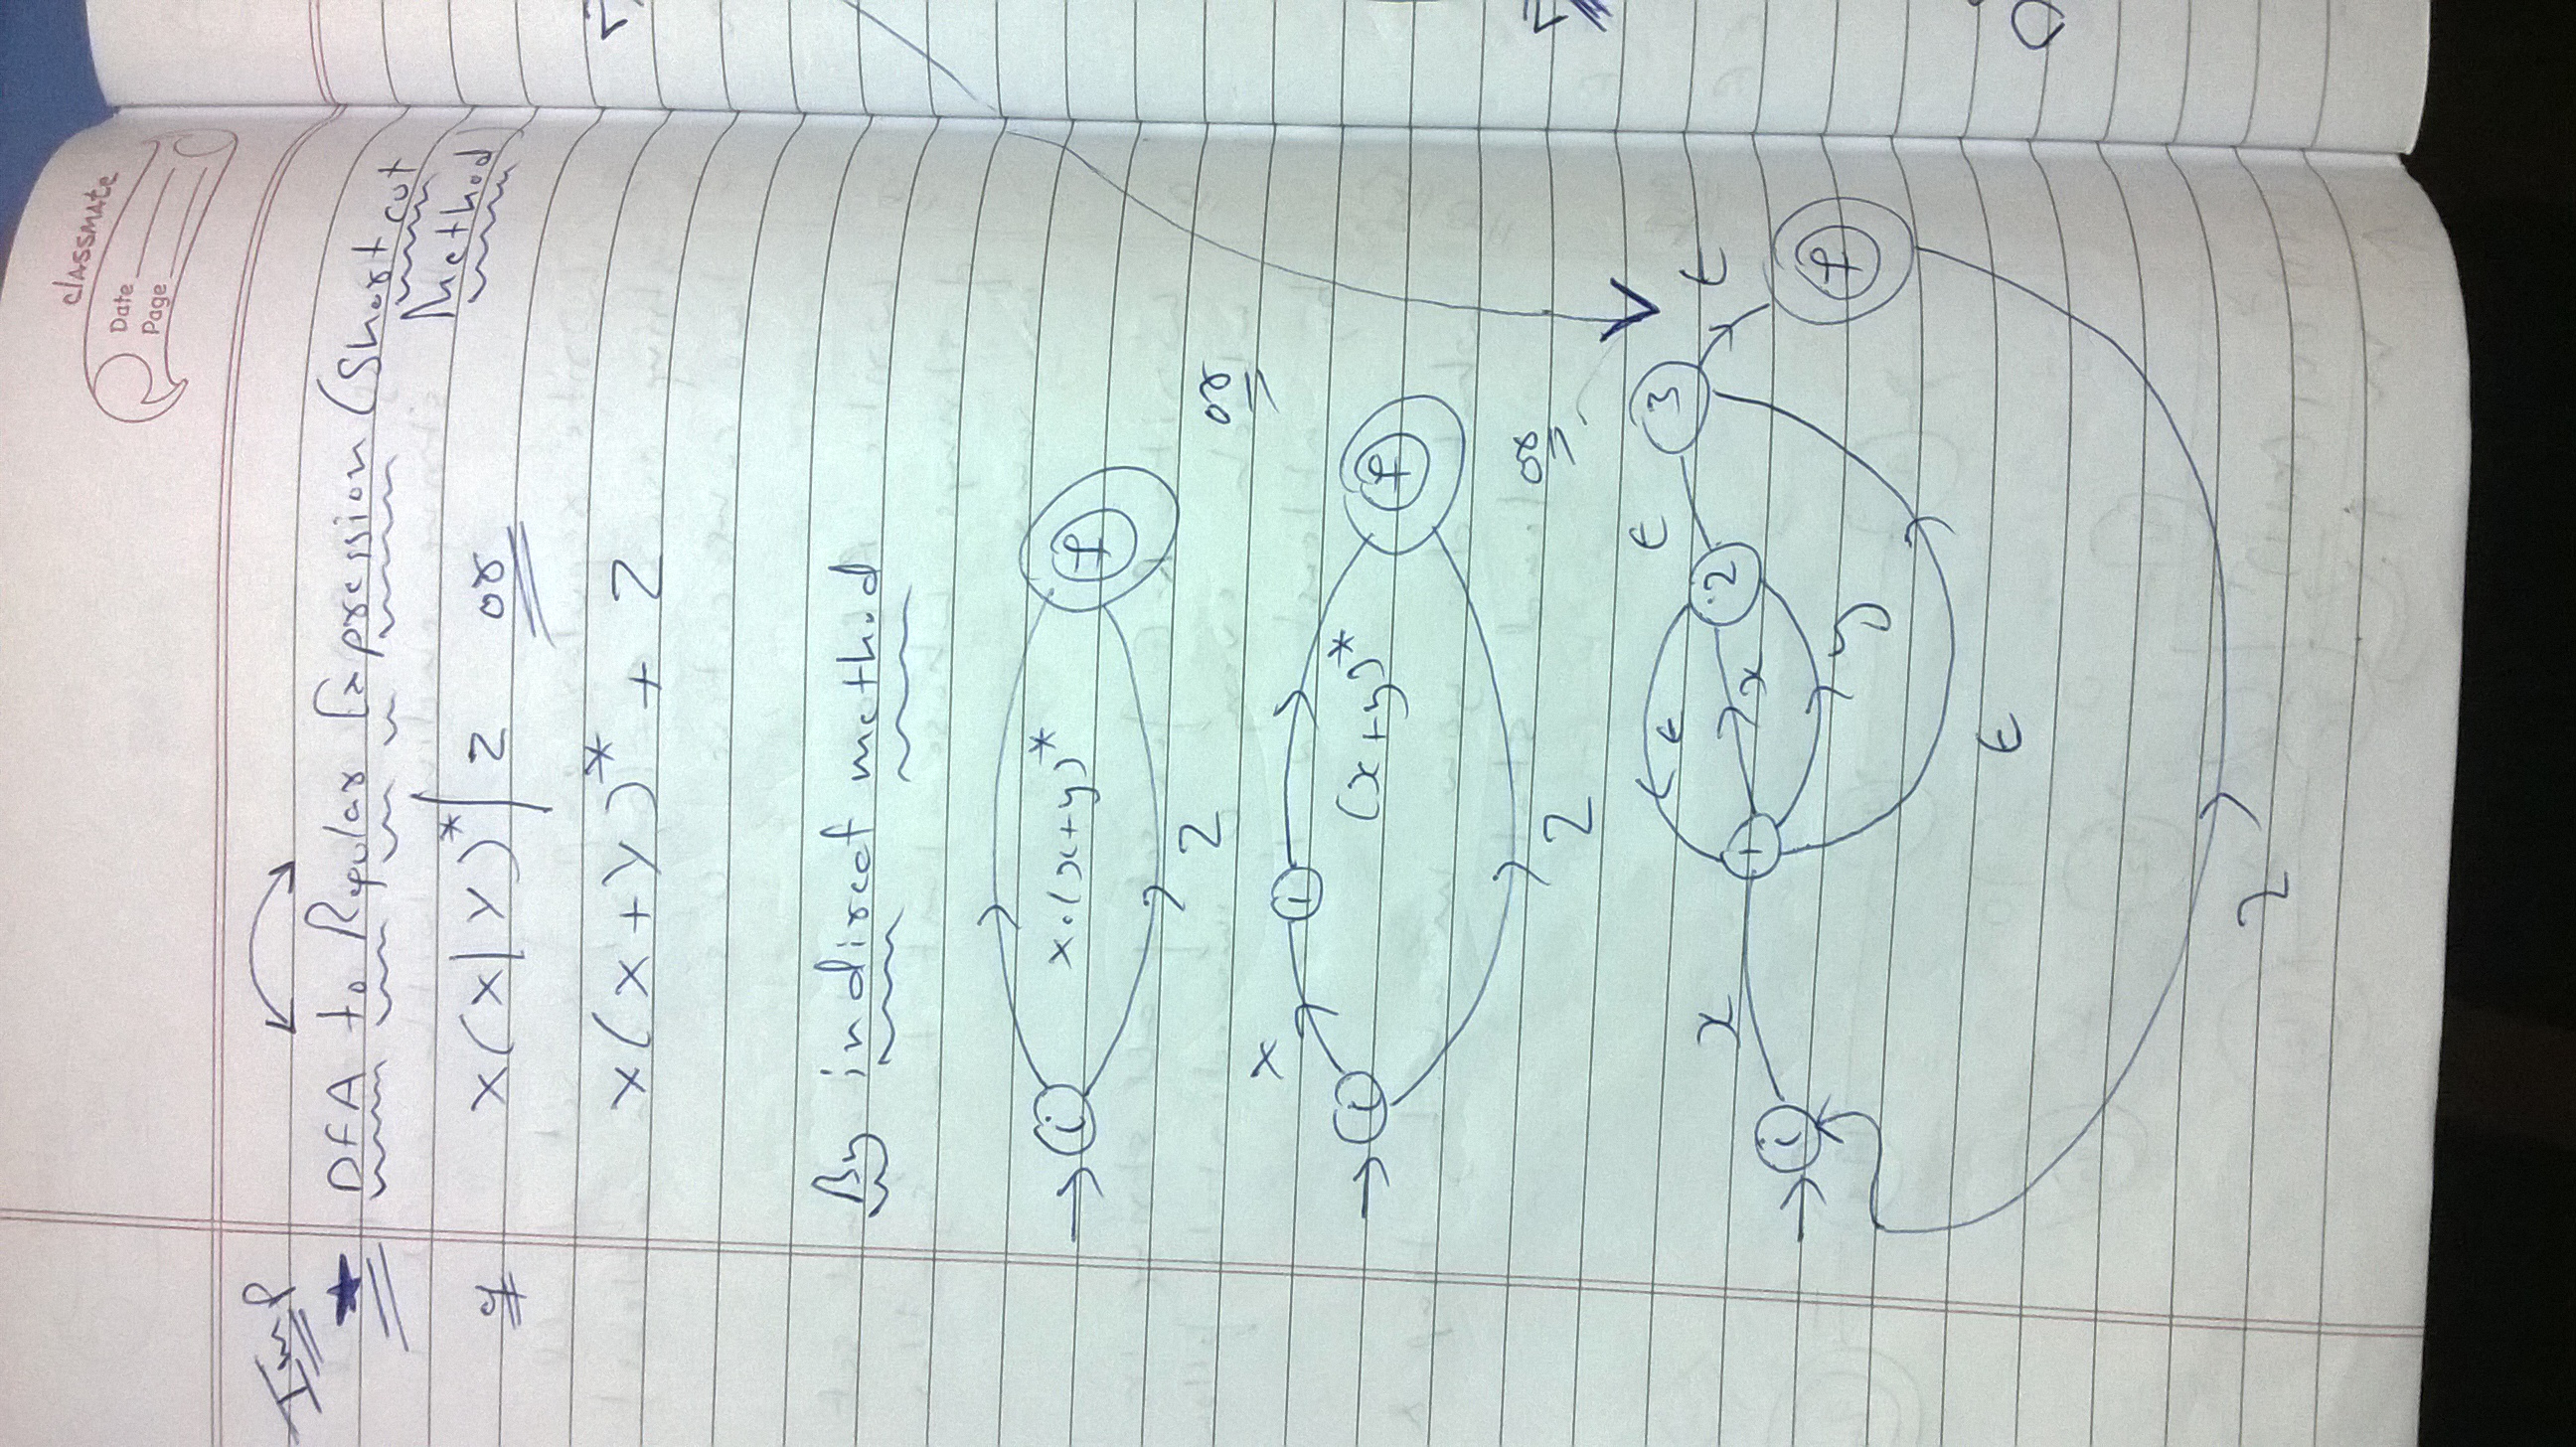 classmate
Date
Page
Imp
DFA to Regular Expression (Short cut
Method)
eg x(x|y)*|z or
x(x+y)* + z
By indirect method
i x.(x+y)* f
z
or
x 1
i (x+y)* f
z
or
ε ε 3
x 2 ε
1 x
i f
y
ε
z